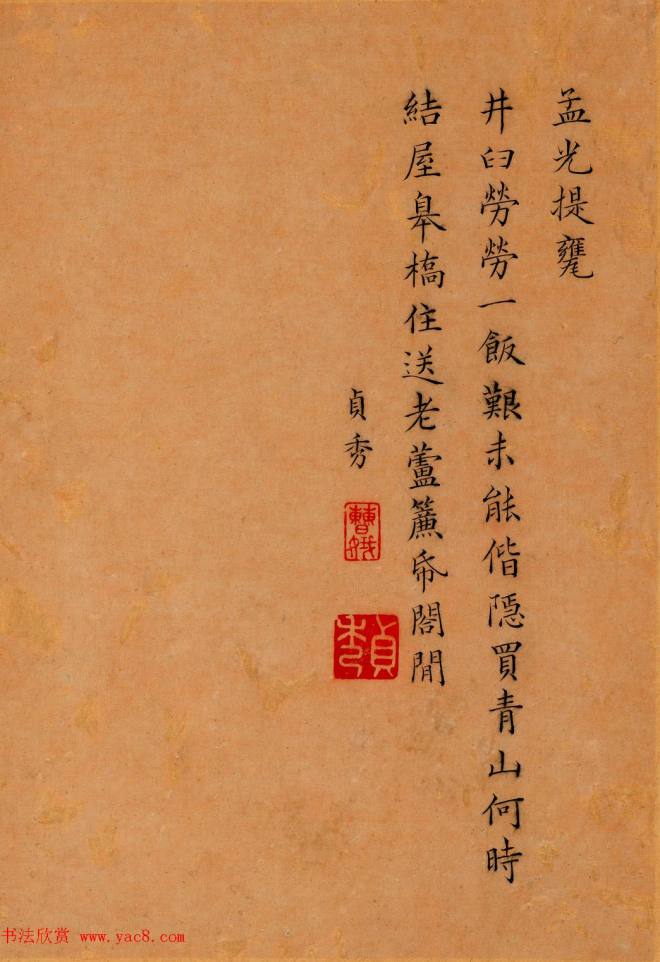 孟光提甕
井臼勞勞一飯艱未能偕隱買青山何時
結屋皋橋住送老蘆簾帋閤閒
貞秀
曹娥
貞秀
书法欣赏 www.yac8.com